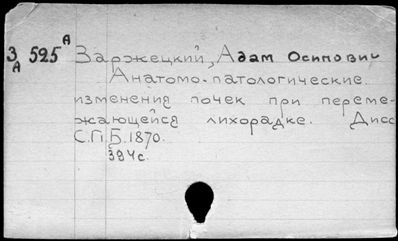 З 525 А Заржецкий, Адам Осипович
А
Анатомо-патологические
изменения почек при переме-
жающейся лихорадке. Дисс
С.П.Б. 1870.
39 4с.